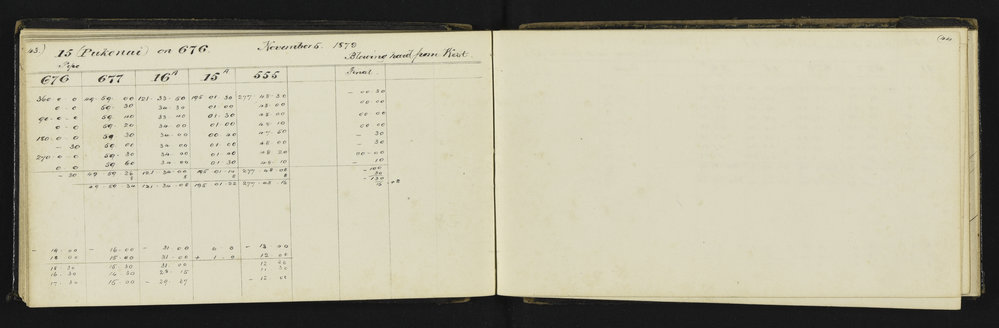 43)
15 (Pukenui) on 676 November 5. 1879
Blowing hard from West.
Pipe
676 677 16A 15A 555 Final
360-0-0 49-59-00 121-33-50 195-01-30 277-48-30 -00 30
0-0 59-30 34-30 01-00 48-00 00 00
90-0-0 59-40 33-40 01-30 48-00 00 00
0-0 59-20 34-00 01-00 49-10 00 00
180-0-0 59 30 34-00 00-40 47-50 - 30
- 30 59-01 34-00 01-00 48 00 - 30
270-0-0 59-30 34-00 01-00 48 20 00-00
0 0 59 60 34 00 01 30 48-10 - 10
- 30 49 59 26 121-34-00 195 01-14 277-48-08 -100
49-59-34 121-34-08 195 01-22 277-48-16
- 19-00 - 16-00 - 31-00 0-0 - 13 00
18 00 15-00 31-00 + 1-0 12 00
18 30 15-30 31-00 12 00
16-30 14-30 28-15 11 30
17-30 15 00 - 29-37 - 12 00
(44